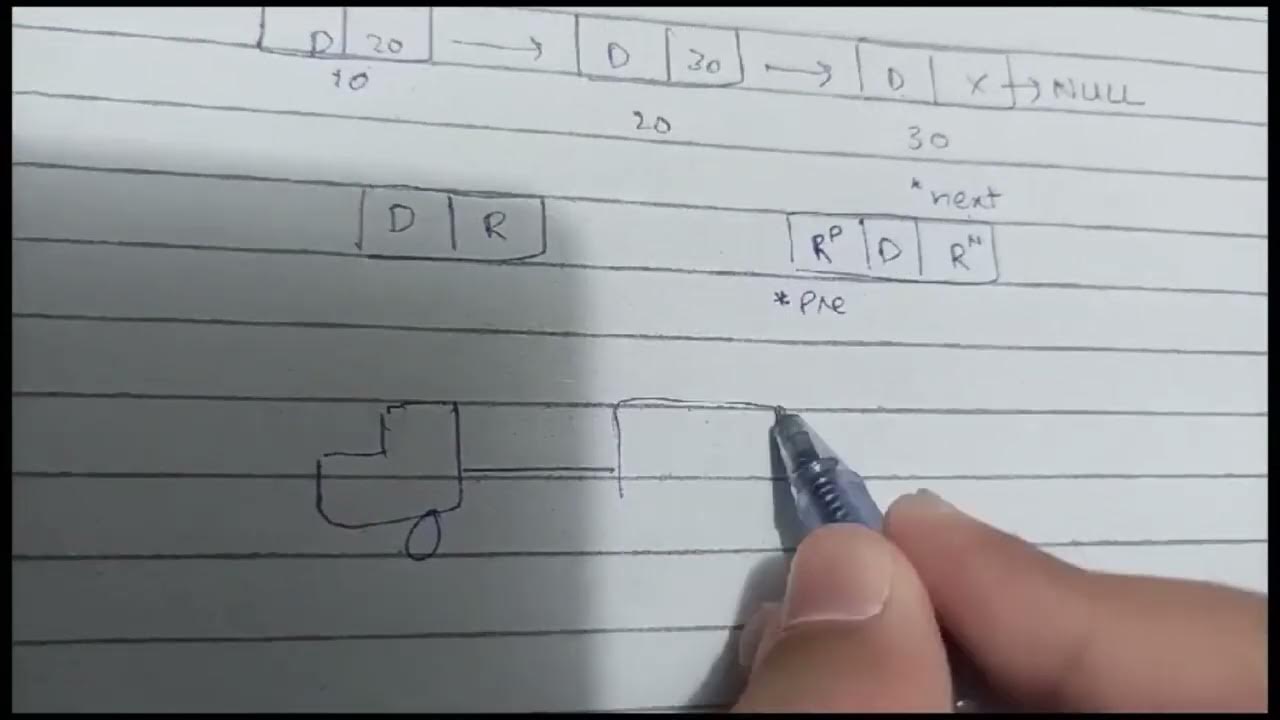 D 20 → D 30 → D X → NULL
10 20 30
*next
D R Rᴾ D Rᴺ
*Pre